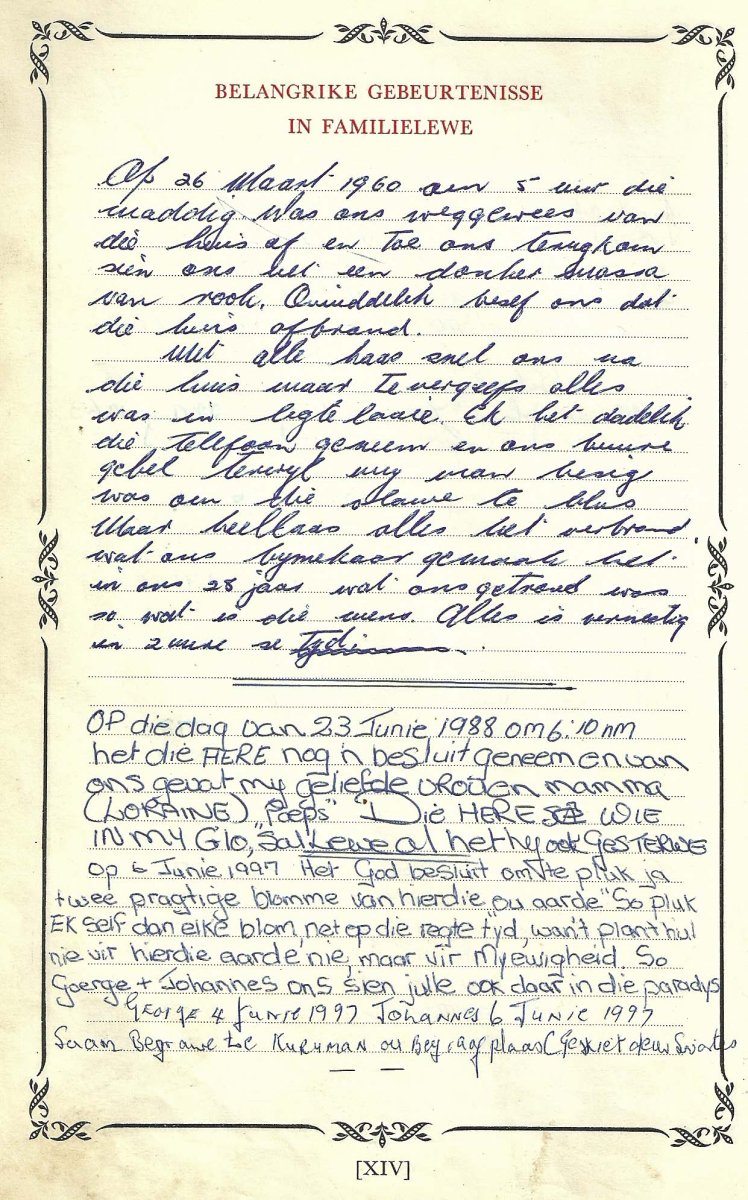 BELANGRIKE GEBEURTENISSE
IN FAMILIELEWE
Op 26 Maart 1960 om 5 uur die
maddag was ons weggewees van
die huis af en toe ons terugkom
sien ons net een donker massa
van rook. Onmiddelik besef ons dat
die huis afbrand.
Met alle haas snel ons na
die huis maar tevergeefs alles
was in ligte laaie. Ek het dadelik
die telefoon geneem en ons bure
gebel terwyl my man besig
was om die vlamme te blus
Maar heellaas alles het verbrand
wat ons bymekaar gemaak het
in ons 28 jaar wat ons getroud was
so wat is die mens. Alles is vernietig
in 2 ure se tyd.
OP die dag van 23 Junie 1988 om 6:10 nm
het die HERE nog 'n besluit geneem en van
ons gevat my geliefde vrou en mamma
(LORAINE) "Poeps" Die HERE SÊ WIE
IN MY Glo, "Sal Lewe al het hy ook GESTERWE
Op 6 Junie 1997 Het God besluit om te pluk ja
twee pragtige blomme van hierdie "ou aarde" "So pluk
EK self dan elke blom, net op die regte tyd, want plant hul
nie vir hierdie aarde nie, maar vir My ewigheid. So
Goerge + Johannes ons sien julle ook daar in die paradys
GEORGE 4 JUNIE 1997 JOHANNES 6 JUNIE 1997
Saam Begrawe te KURUMAN ou plaas (Geskiet deur Swartes
[XIV]